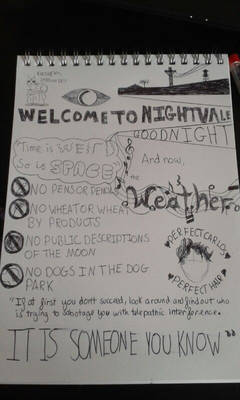 WELCOME TO NIGHTVALE
GOODNIGHT
Time is WEIRD
So is SPACE
And now,
the
Weather
NO PENS OR PENCILS
NO WHEAT OR WHEAT
BY PRODUCTS
NO PUBLIC DESCRIPTIONS
OF THE MOON
NO DOGS IN THE DOG
PARK
PERFECT CARLOS
PERFECT HAIR
"If at first you don't succeed, look around and find out who
is trying to sabotage you with telepathic interference.
IT IS SOMEONE YOU KNOW"